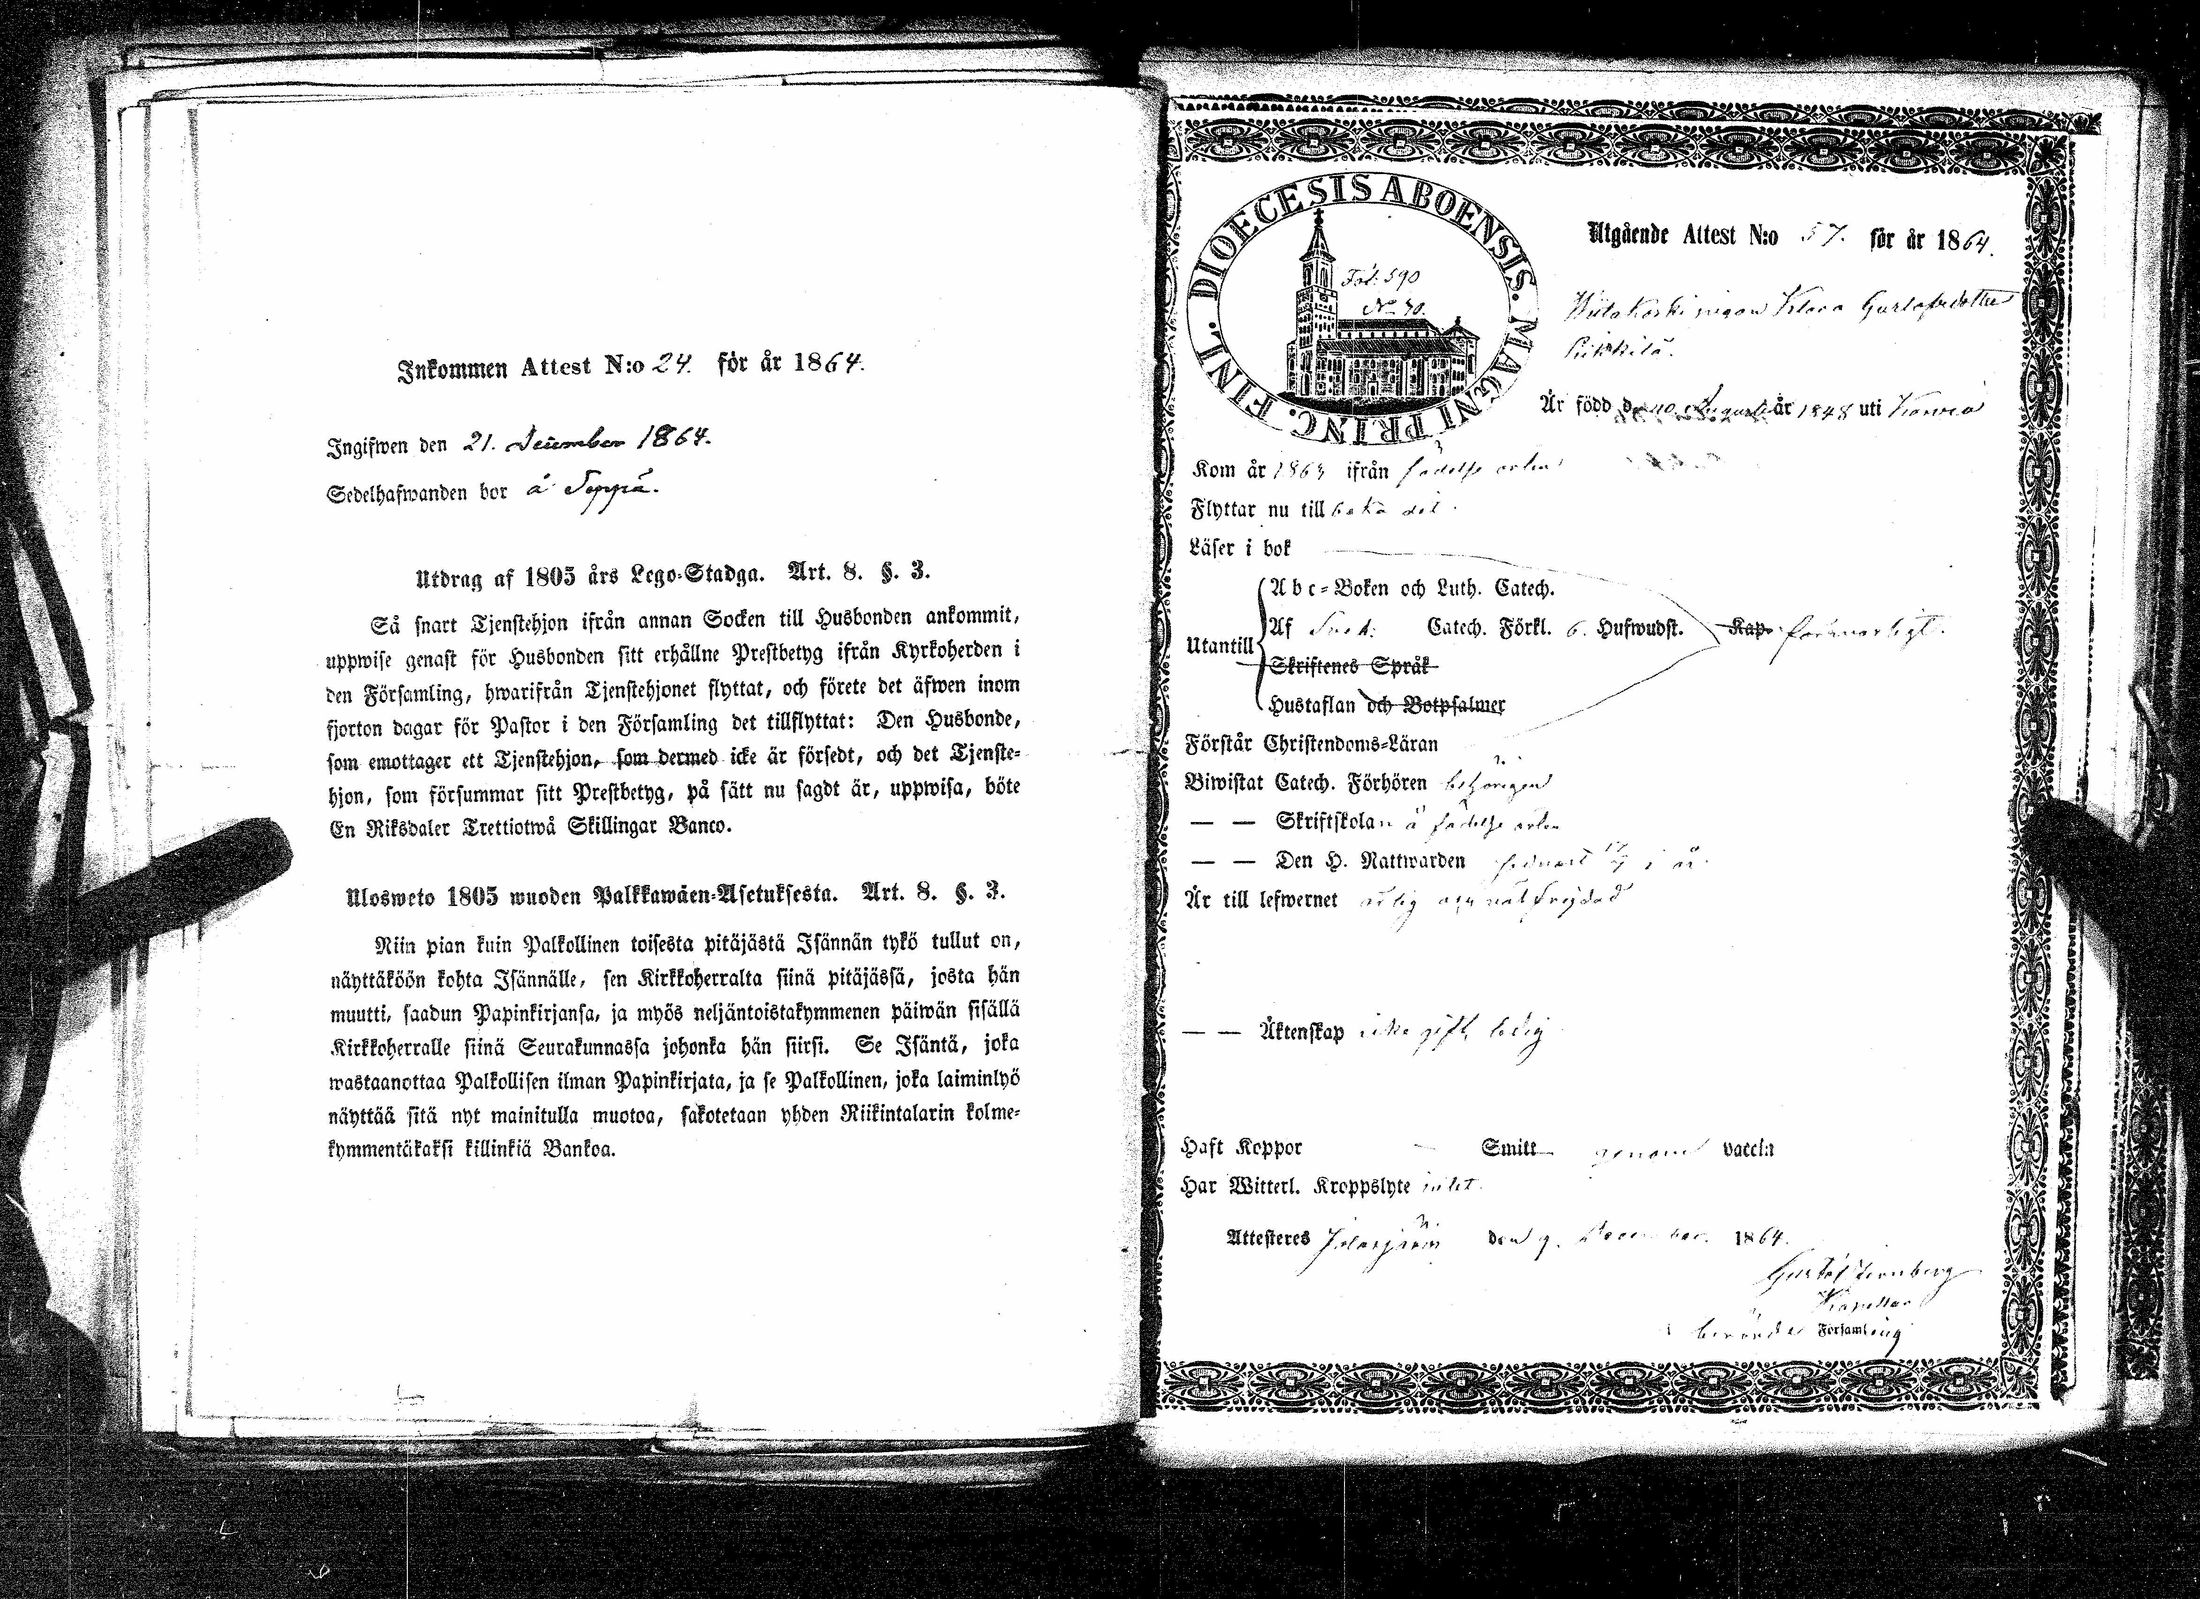 Inkommen Attest N:o 24. för år 1864.
Ingifwen den 21. December 1864.
Sedelhafwanden bor å Seppä.
Utdrag af 1805 års Lego-Stadga. Art. 8. §. 3.
Så snart Tjenstehjon ifrån annan Socken till Husbonden ankommit,
uppwise genast för Husbonden sitt erhållne Prestbetyg ifrån Kyrkoherden i
den Församling, hwarifrån Tjenstehjonet flyttat, och förete det äfwen inom
fjorton dagar för Pastor i den Församling det tillflyttat: Den Husbonde,
som emottager ett Tjenstehjon, som dermed icke är försedt, och det Tjenste-
hjon, som försummar sitt Prestbetyg, på sätt nu sagdt är, uppwisa, böte
En Riksdaler Trettiotwå Skillingar Banco.
Ulosweto 1805 wuoden Palkkawäen-Asetuksesta. Art. 8. §. 3.
Niin pian kuin Palkollinen toisesta pitäjästä Isännän tykö tullut on,
näyttäköön kohta Isännälle, sen Kirkkoherralta siinä pitäjässä, josta hän
muutti, saadun Papinkirjansa, ja myös neljäntoistakymmenen päiwän sisällä
Kirkkoherralle siinä Seurakunnassa johonka hän siirsi. Se Isäntä, joka
wastaanottaa Palkollisen ilman Papinkirjata, ja se Palkollinen, joka laiminlyö
näyttää sitä nyt mainitulla muotoa, sakotetaan yhden Riikintalarin kolme-
kymmentäkaksi killinkiä Bankoa.
DIOECESIS ABOENSIS. MAGNI PRINC. FINL.
Fol: 590
No 70.
Utgående Attest N:o 57. för år 1864.
pigan Klara Gustafsdotter
Är född d. 10 Augusti år 1848 uti
Kom år 1864 ifrån födelse orten
Flyttar nu till baka dit.
Läser i bok
Utantill
Abc-Boken och Luth. Catech.
Af Sved: Catech. Förkl. 6. Hufwudst. Kap. förswarligt.
Skriftenes Språk
Hustaflan och Botpsalmer
Förstår Christendoms-Läran
Biwistat Catech. Förhören behörigen
— — Skriftskolan å födelse orten
— — Den H. Nattwarden senast i år.
Är till lefwernet ärlig och välfrejdad
— — Äktenskap icke gift, ledig
Haft Koppor — Smitt genom vaccin
Har Witterl. Kroppslyte intet.
Attesteres Jalasjärvi den 9. December 1864.
Gustaf
Kapellan
i berörde Församling